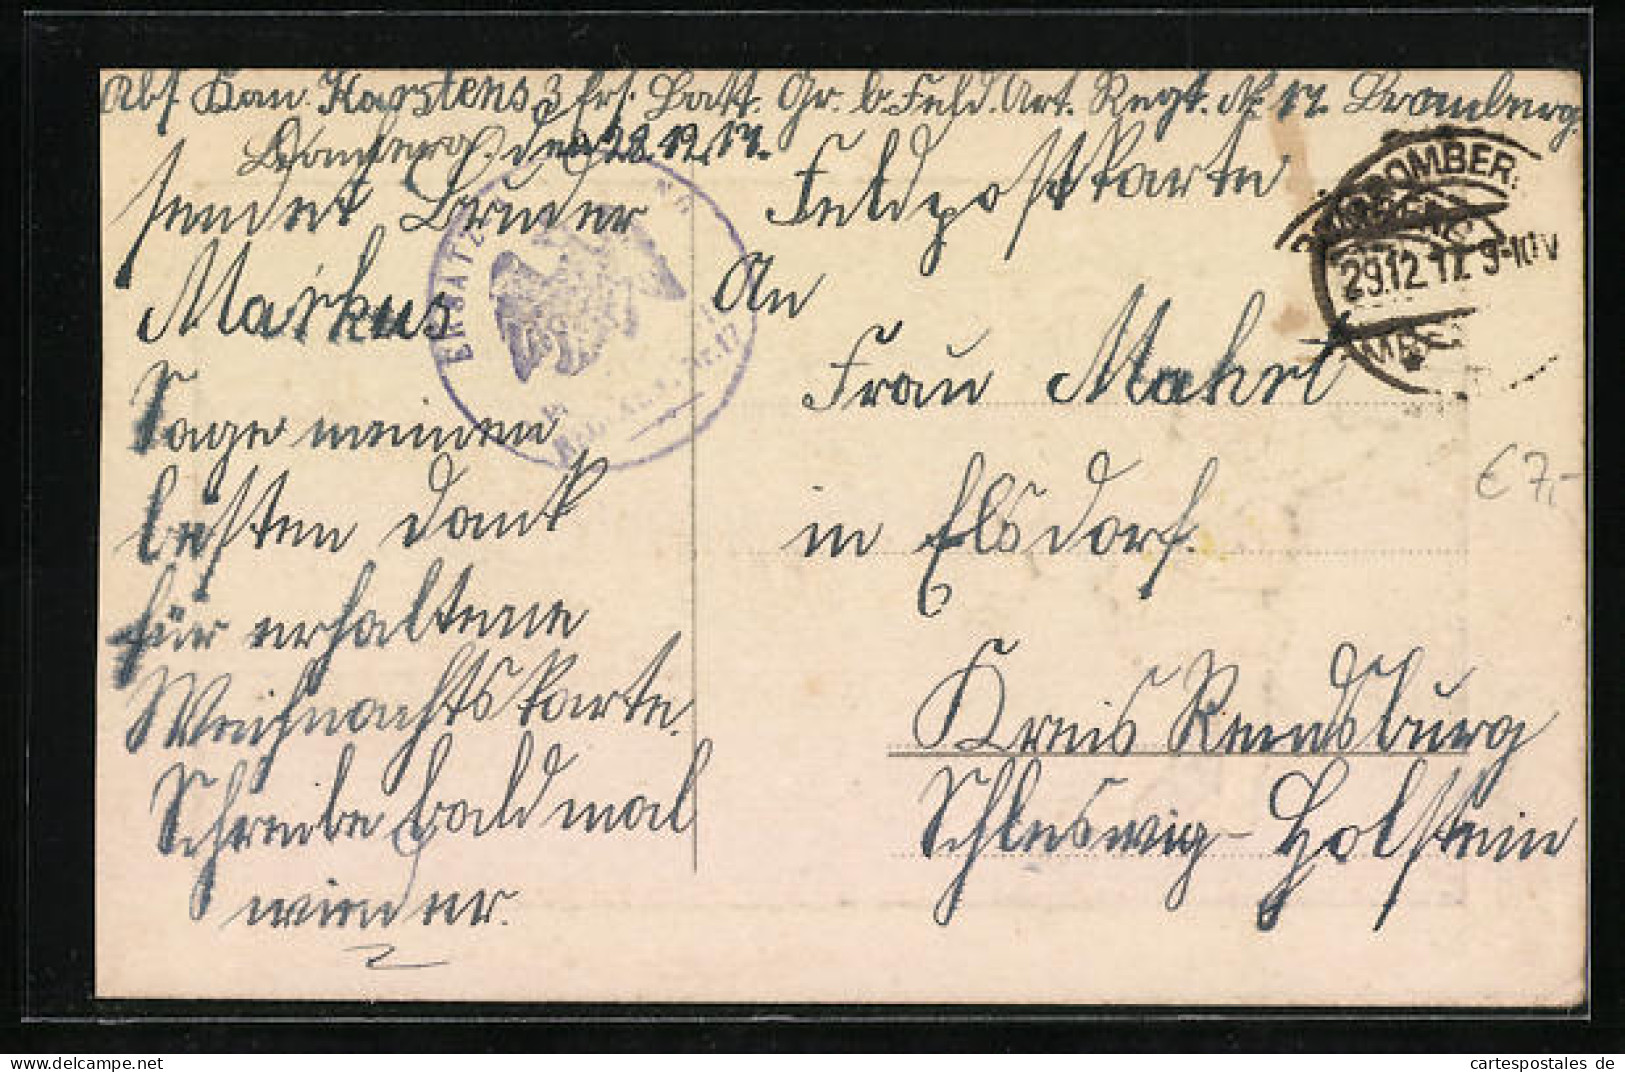 Abs. Kan. Karstens 3 Ers. Batt. Gr. b. Feld. Art. Regt. Nr. 17. Bromberg.
Bromberg, den 28.12.17.
sendet Bruder
Markus
Sage meinen
besten Dank
für erhaltene
Weihnachtskarte.
Schreibe bald mal
wieder.
Feldpostkarte
An
Frau Mahrt
in Elsdorf.
Kreis Rendsburg
Schleswig-Holstein
ERSATZ
Nr. 17
BROMBERG
29.12.17. 9-10 V
€ 7,-
Ansichtskarten-Center Onlineshop
cartespostales de